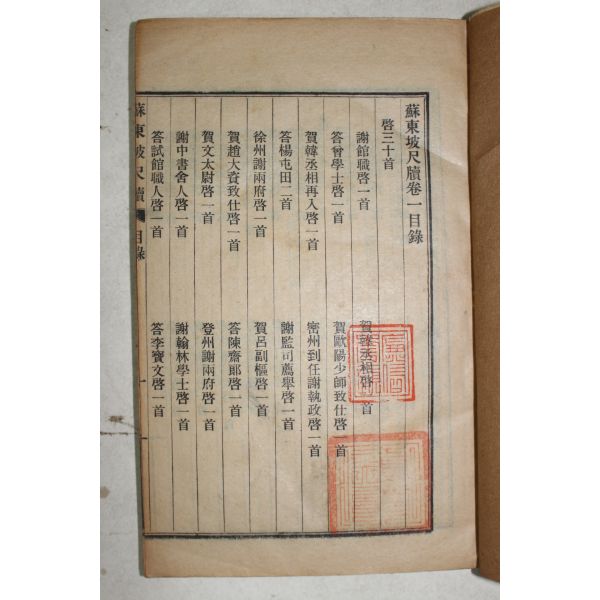 蘇東坡尺牘卷一目錄
啓三十首
謝館職啓一首
賀韓丞相啓一首
答曾學士啓一首
賀歐陽少師致仕啓一首
賀韓丞相再入啓一首
密州到任謝執政啓一首
答楊屯田二首
謝監司薦舉啓一首
徐州謝兩府啓一首
賀呂副樞啓一首
賀趙大資致仕啓一首
答陳齋郞啓一首
賀文太尉啓一首
登州謝兩府啓一首
謝中書舍人啓一首
謝翰林學士啓一首
答試館職人啓一首
答李寶文啓一首
蘇東坡尺牘 目錄 一